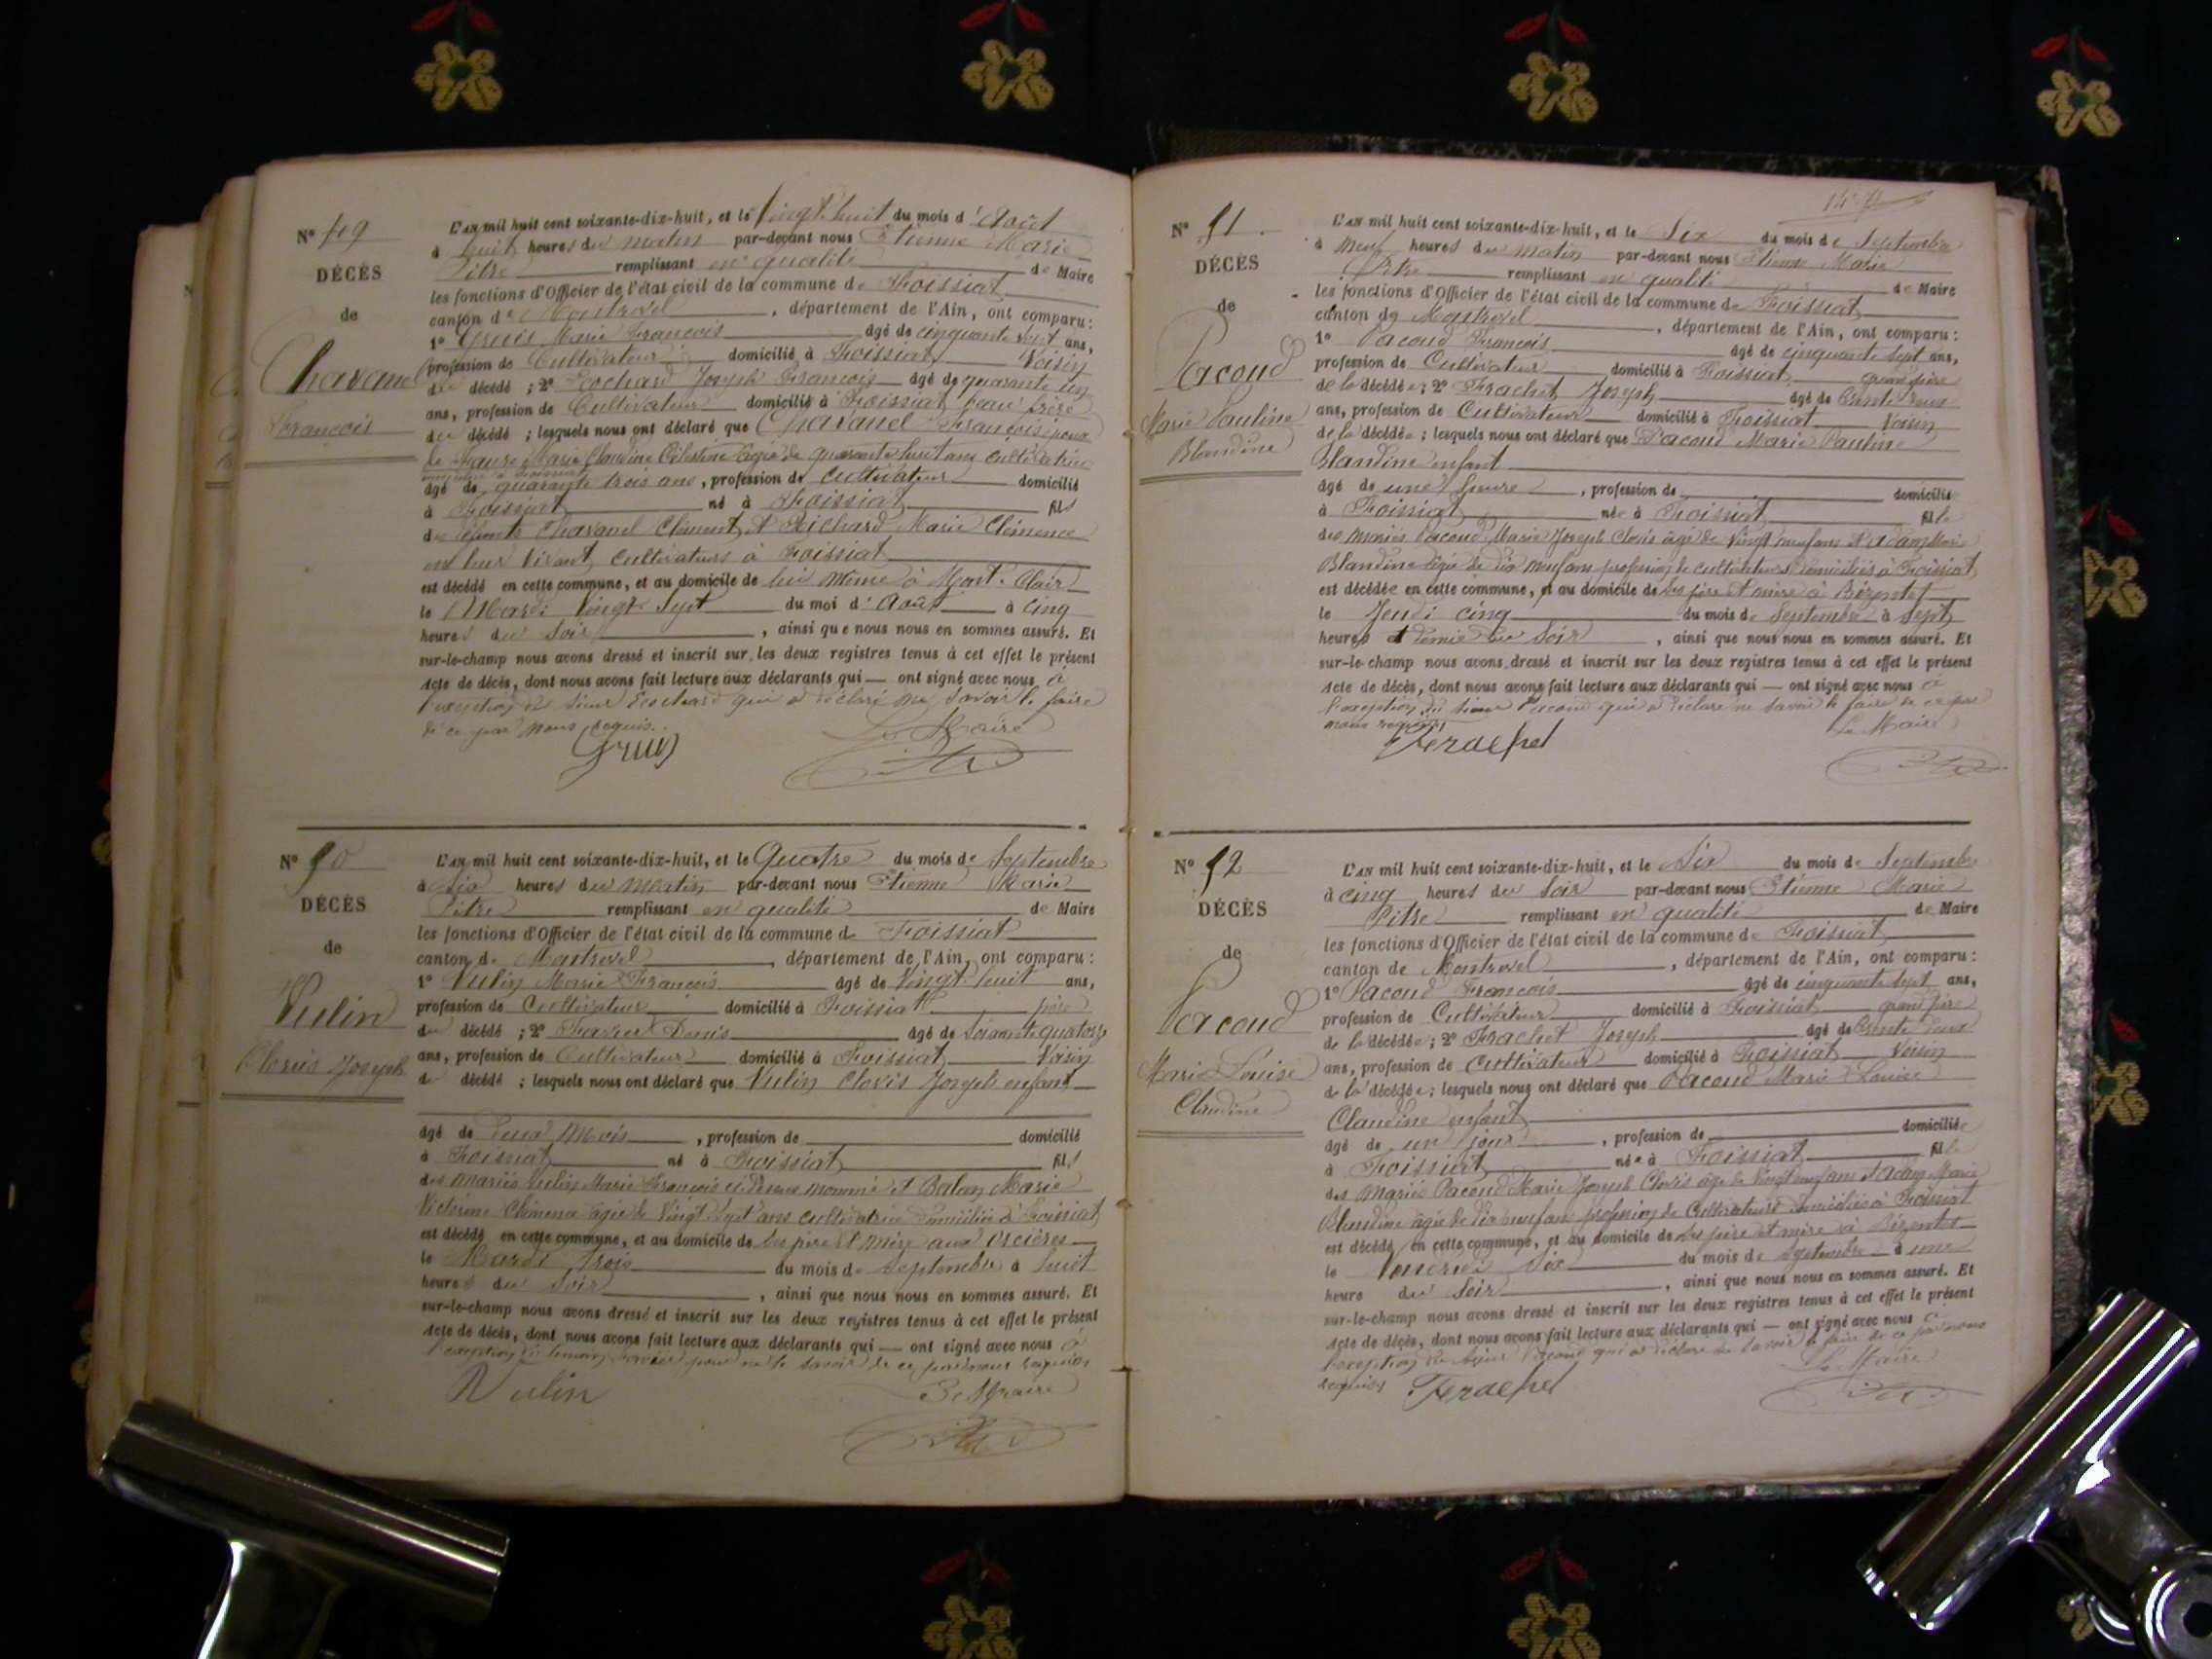 N° 49
DÉCÈS
de
Chavanel
François
L'AN mil huit cent soixante-dix-huit, et le Vingt huit du mois d'Août
à huit heures du matin par-devant nous Etienne Marie
Pitre remplissant en qualité de Maire
les fonctions d'Officier de l'état civil de la commune de Foissiat
canton de Montrevel, département de l'Ain, ont comparu:
1° Gruis Marie François âgé de cinquante sept ans,
profession de Cultivateur domicilié à Foissiat Voisin
du décédé ; 2° Ecochard Joseph François âgé de quarante un
ans, profession de Cultivateur domicilié à Foissiat beau frère
du décédé ; lesquels nous ont déclaré que Chavanel François époux
de Marie Claudine Célestine âgée de quarante huit ans cultivatrice
âgé de quarante trois ans, profession de cultivateur domicilié
à Foissiat né à Foissiat fils
des défunts Chavanel Clément et Richard Marie Clémence
en leur vivant cultivateurs à Foissiat
est décédé en cette commune, et au domicile de lui même à Mont-Clair
le Mardi Vingt Sept du moi d'Août à cinq
heures du soir, ainsi que nous nous en sommes assuré. Et
sur-le-champ nous avons dressé et inscrit sur les deux registres tenus à cet effet le présent
Acte de décès, dont nous avons fait lecture aux déclarants qui — ont signé avec nous à
l'exception du sieur Ecochard qui a déclaré ne savoir le faire
de ce par nous requis.
Le Maire
Gruis
N° 50
DÉCÈS
de
Vulin
Clovis Joseph
L'AN mil huit cent soixante-dix-huit, et le Quatre du mois de Septembre
à Six heures du Matin par-devant nous Etienne Marie
Pitre remplissant en qualité de Maire
les fonctions d'Officier de l'état civil de la commune de Foissiat
canton de Montrevel, département de l'Ain, ont comparu :
1° Vulin Marie François âgé de Vingt huit ans,
profession de Cultivateur domicilié à Foissiat père
du décédé ; 2° Denis âgé de Soixante quatorze
ans, profession de Cultivateur domicilié à Foissiat Voisin
du décédé ; lesquels nous ont déclaré que Vulin Clovis Joseph enfant
âgé de Deux Mois, profession de domicilié
à Foissiat né à Foissiat fils
des mariés Vulin Marie François ci-dessus nommé et Balan Marie
Victorine Clémence âgée de Vingt Sept ans cultivatrice domiciliée à Foissiat
est décédé en cette commune, et au domicile de ses père et mère aux
le Mardi trois du mois de Septembre à huit
heures du soir, ainsi que nous nous en sommes assuré. Et
sur-le-champ nous avons dressé et inscrit sur les deux registres tenus à cet effet le présent
Acte de décès, dont nous avons fait lecture aux déclarants qui — ont signé avec nous à
l'exception du témoin pour ne le savoir de ce par nous requis
Vulin Le Maire
N° 51
DÉCÈS
de
Pacoud
Marie Pauline
Blandine
L'AN mil huit cent soixante-dix-huit, et le Six du mois de Septembre
à neuf heures du matin par-devant nous Etienne Marie
Pitre remplissant en qualité de Maire
les fonctions d'Officier de l'état civil de la commune de Foissiat
canton de Montrevel, département de l'Ain, ont comparu :
1° Pacoud François âgé de cinquante sept ans,
profession de Cultivateur domicilié à Foissiat grand père
de la décédée ; 2° Frachet Joseph âgé de trente deux
ans, profession de Cultivateur domicilié à Foissiat Voisin
de la décédée ; lesquels nous ont déclaré que Pacoud Marie Pauline
Blandine enfant
âgé de une heure, profession de domicilié
à Foissiat née à Foissiat fille
des mariés Pacoud Marie Joseph Clovis âgé de Vingt neuf ans et Adam Marie
Blandine âgée de dix neuf ans profession de cultivateurs domiciliés à Foissiat
est décédée en cette commune, et au domicile de ses père et mère à Bézentet
le Jeudi cinq du mois de Septembre à sept
heures et demie du soir, ainsi que nous nous en sommes assuré. Et
sur-le-champ nous avons dressé et inscrit sur les deux registres tenus à cet effet le présent
Acte de décès, dont nous avons fait lecture aux déclarants qui — ont signé avec nous à
l'exception du sieur Pacoud qui a déclaré ne savoir le faire de ce par
nous requis
Le Maire
Frachet
N° 52
DÉCÈS
de
Pacoud
Marie Louise
Claudine
L'AN mil huit cent soixante-dix-huit, et le Six du mois de Septembre
à cinq heures du Soir par-devant nous Etienne Marie
Pitre remplissant en qualité de Maire
les fonctions d'Officier de l'état civil de la commune de Foissiat
canton de Montrevel, département de l'Ain, ont comparu :
1° Pacoud François âgé de cinquante sept ans,
profession de Cultivateur domicilié à Foissiat grand père
de la décédée ; 2° Frachet Joseph âgé de trente deux
ans, profession de Cultivateur domicilié à Foissiat Voisin
de la décédée ; lesquels nous ont déclaré que Pacoud Marie Louise
Claudine enfant
âgé de un jour, profession de domiciliée
à Foissiat née à Foissiat fille
des mariés Pacoud Marie Joseph Clovis âgé de Vingt neuf ans et Adam Marie
Blandine âgée de dix neuf ans profession de Cultivateurs domiciliés à Foissiat
est décédé en cette commune, et au domicile de ses père et mère à Bézentet
le Vendredi Six du mois de Septembre à une
heure du soir, ainsi que nous nous en sommes assuré. Et
sur-le-champ nous avons dressé et inscrit sur les deux registres tenus à cet effet le présent
Acte de décès, dont nous avons fait lecture aux déclarants qui — ont signé avec nous à
l'exception du sieur Pacoud qui a déclaré ne savoir le faire de ce par nous
requis Frachet Le Maire